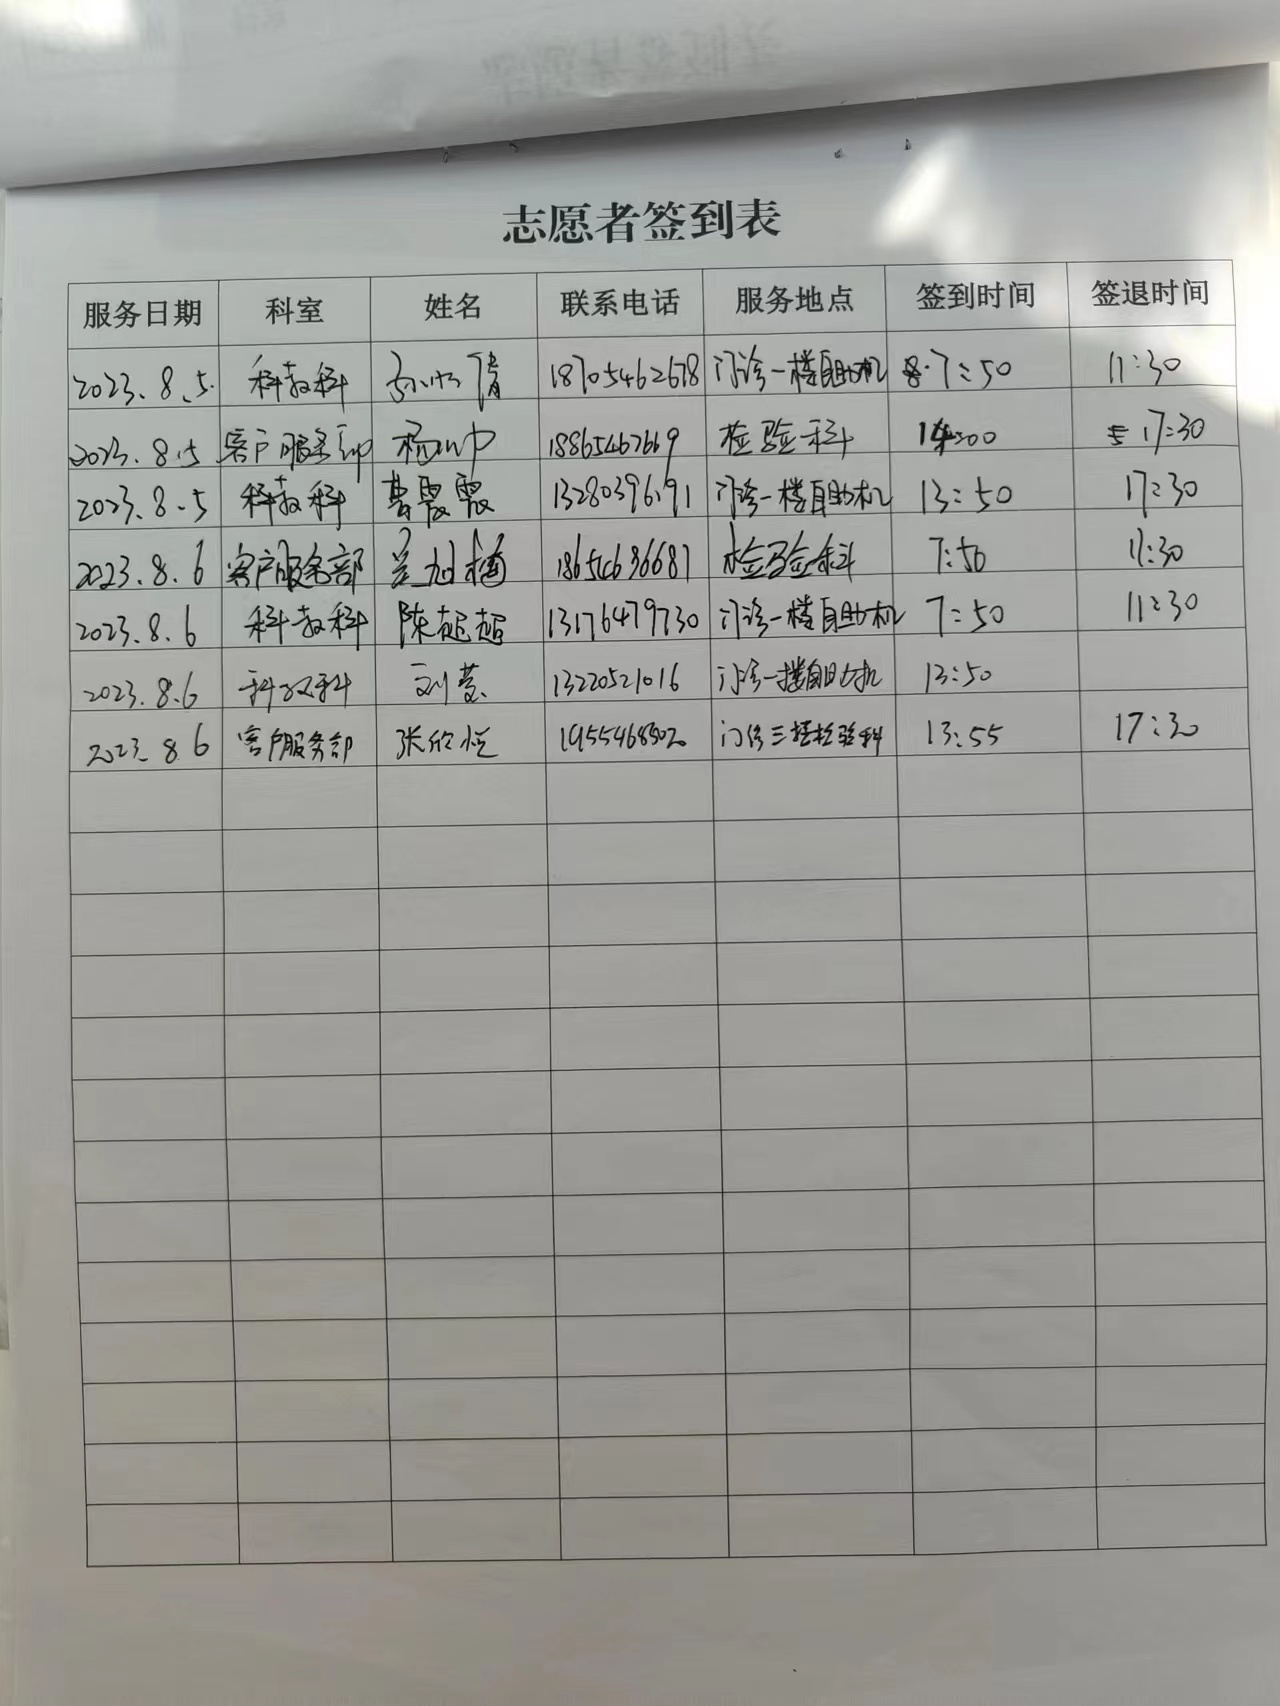 志愿者签到表
服务日期 科室 姓名 联系电话 服务地点 签到时间 签退时间
2023.8.5. 科教科 18705462678 门诊一楼自助机 7:50 11:30
2023.8.5 客户服务部 杨帅 18865467669 检验科 14:00 17:30
2023.8.5 科教科 曹霞霞 13280396191 门诊一楼自助机 13:50 17:30
2023.8.6 客户服务部 18654636681 检验科 7:50 11:30
2023.8.6 科教科 陈超超 13176479730 门诊一楼自助机 7:50 11:30
2023.8.6 科教科 刘莹 13220521016 门诊一楼自助机 13:50
2023.8.6 客户服务部 张欣悦 门诊三楼检验科 13:55 17:30